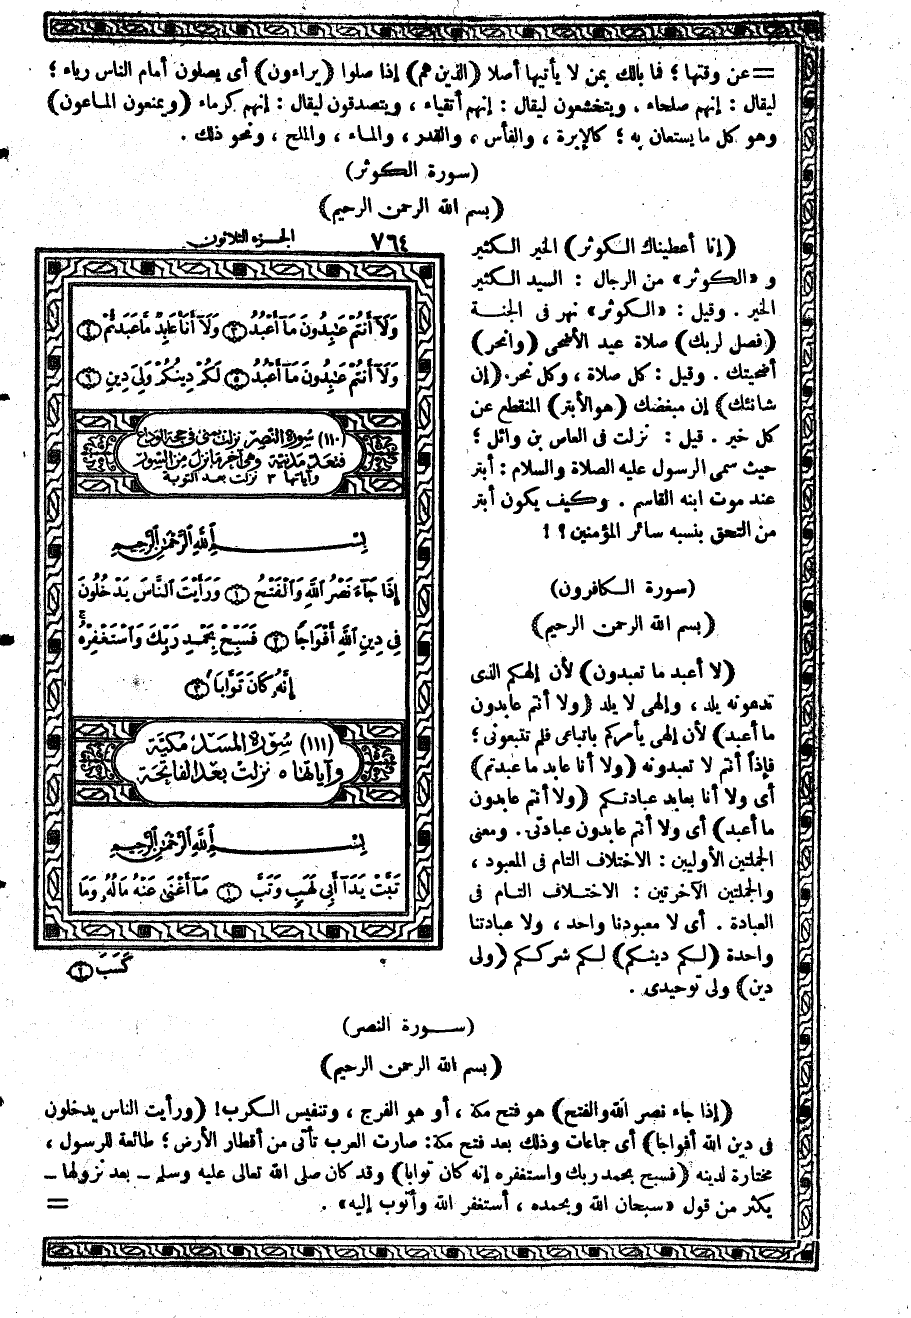 = عن وقتها ؛ فما بالك بمن لا يأتيها أصلا (الذين هم) إذا صلوا (يراءون) أى يصلون أمام الناس رياء ؛
ليقال : إنهم صلحاء . ويتخشعون ليقال : إنهم أتقياء ، ويتصدقون ليقال : إنهم كرماء (ويمنعون الماعون)
وهو كل ما يستعان به ؛ كالإبرة ، والفأس ، والقدر ، والماء ، والملح ، ونحو ذلك .
(سورة الكوثر)
(بسم الله الرحمن الرحيم)
(إنا أعطيناك الكوثر) الخير الكثير
و «الكوثر» من الرجال : السيد الكثير
الخير . وقيل : «الكوثر» نهر فى الجنة
(فصل لربك) صلاة عيد الأضحى (وانحر)
أضحيتك . وقيل : كل صلاة ، وكل نحر. (إن
شانئك) إن مبغضك (هو الأبتر) المنقطع عن
كل خير . قيل : نزلت فى العاص بن وائل ؛
حيث سمى الرسول عليه الصلاة والسلام : أبتر
عند موت ابنه القاسم . وكيف يكون أبتر
من التحق بنسبه سائر المؤمنين ؟ !
(سورة الكافرون)
(بسم الله الرحمن الرحيم)
(لا أعبد ما تعبدون) لأن إلهكم الذى
تدعونه يلد ، وإلهى لا يلد (ولا أنتم عابدون
ما أعبد) لأن إلهى يأمركم باتباعى فلم تتبعونى ؛
فإذاً أنتم لا تعبدونه (ولا أنا عابد ما عبدتم)
أى ولا أنا بعابد عبادتكم (ولا أنتم عابدون
ما أعبد) أى ولا أنتم عابدون عبادتى . ومعنى
الجملتين الأوليين : الاختلاف التام فى المعبود ،
والجملتين الآخرتين : الاختلاف التام فى
العبادة . أى لا معبودنا واحد ، ولا عبادتنا
واحدة (لكم دينكم) لكم شرككم (ولى
دين) ولى توحيدى .
٧٦٤ الجزء الثلاثون
وَلَآ أَنتُمْ عَٰبِدُونَ مَآ أَعْبُدُ ٣ وَلَآ أَنَا۠ عَابِدٌ مَّا عَبَدتُّمْ ٤
وَلَآ أَنتُمْ عَٰبِدُونَ مَآ أَعْبُدُ ٥ لَكُمْ دِينُكُمْ وَلِىَ دِينِ ٦
(١١٠) سُورَة النصر نزلت بمنى فى حجة الوداع
فتعد مدنية وهى آخر ما نزل من السور
وآياتها ٣ نزلت بعد التوبة
بِسْمِ ٱللَّهِ ٱلرَّحْمَٰنِ ٱلرَّحِيمِ
إِذَا جَآءَ نَصْرُ ٱللَّهِ وَٱلْفَتْحُ ١ وَرَأَيْتَ ٱلنَّاسَ يَدْخُلُونَ
فِى دِينِ ٱللَّهِ أَفْوَاجًا ٢ فَسَبِّحْ بِحَمْدِ رَبِّكَ وَٱسْتَغْفِرْهُ ۚ
إِنَّهُۥ كَانَ تَوَّابَۢا ٣
(١١١) سُورَة المسد مكية
وآياتها ٥ نزلت بعد الفاتحة
بِسْمِ ٱللَّهِ ٱلرَّحْمَٰنِ ٱلرَّحِيمِ
تَبَّتْ يَدَآ أَبِى لَهَبٍ وَتَبَّ ١ مَآ أَغْنَىٰ عَنْهُ مَالُهُۥ وَمَا
كَسَبَ ٢
(سورة النصر)
(بسم الله الرحمن الرحيم)
(إذا جاء نصر الله والفتح) هو فتح مكة ، أو هو الفرج ، وتنفيس الكرب! (ورأيت الناس يدخلون
فى دين الله أفواجا) أى جماعات وذلك بعد فتح مكة: صارت العرب تأتى من أقطار الأرض ؛ طائعة للرسول ،
مختارة لدينه (فسبح بحمد ربك واستغفره إنه كان توابا) وقد كان صلى الله تعالى عليه وسلم ــ بعد نزولها ــ
يكثر من قول «سبحان الله وبحمده ، أستغفر الله وأتوب إليه» . =